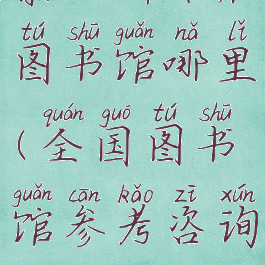 tú shū guǎn nǎ lǐ
图书馆哪里
quán guó tú shū
(全国图书
guǎn cān kǎo zī xún
馆参考咨询